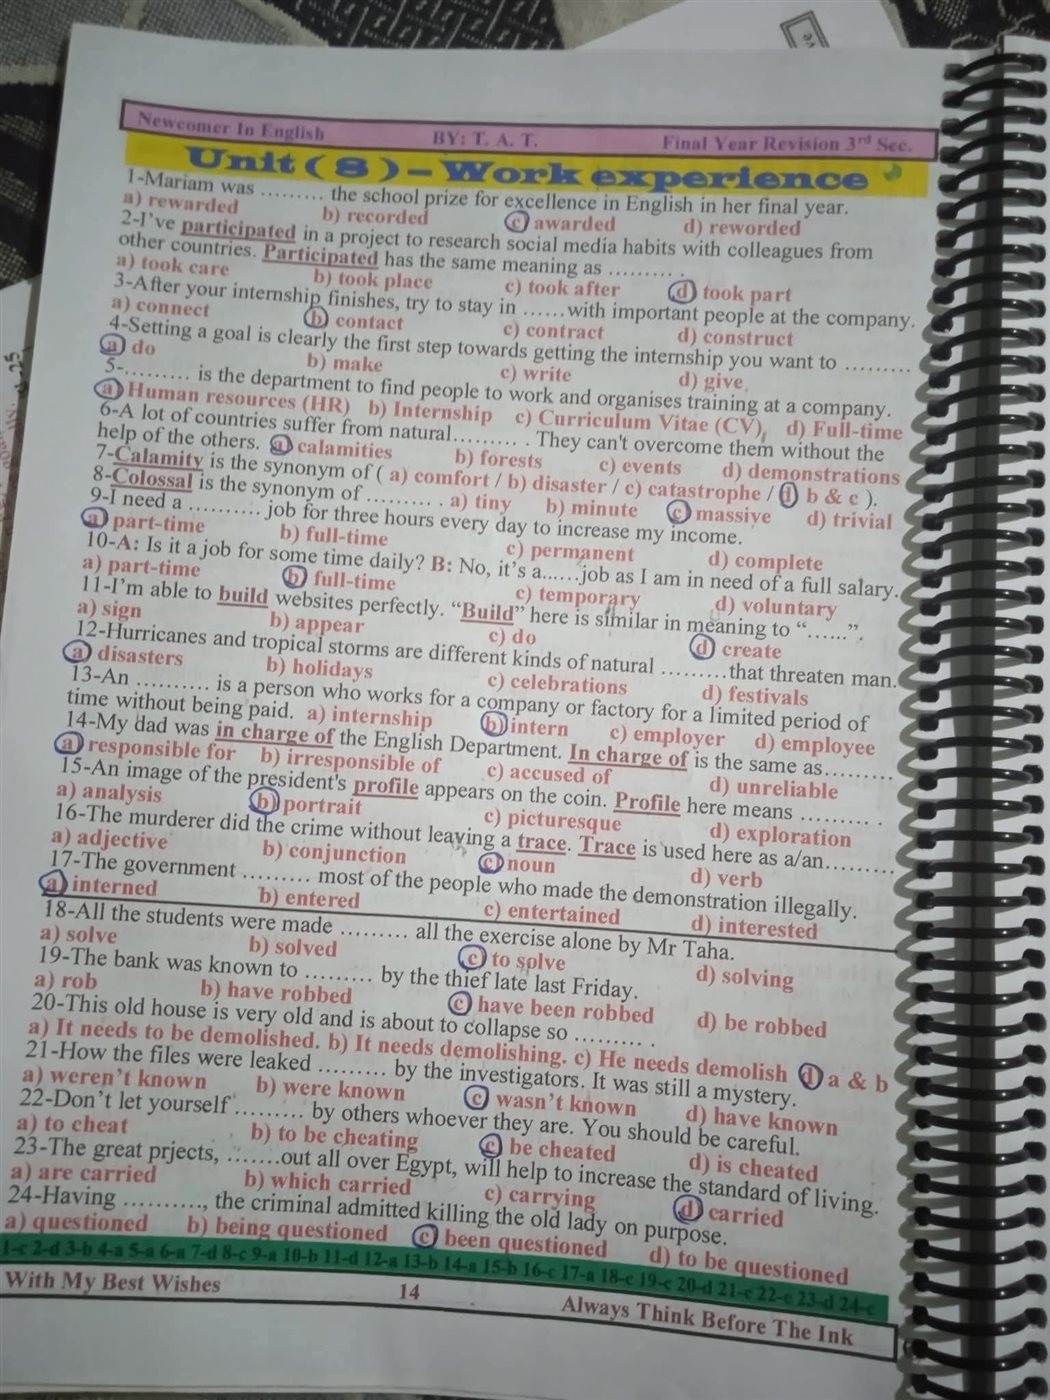 Newcomer In English BY: T. A. T. Final Year Revision 3rd Sec.
Unit ( 8 ) – Work experience
1-Mariam was ……… the school prize for excellence in English in her final year.
a) rewarded b) recorded c) awarded d) reworded
2-I've participated in a project to research social media habits with colleagues from
other countries. Participated has the same meaning as ……… .
a) took care b) took place c) took after d) took part
3-After your internship finishes, try to stay in ……with important people at the company.
a) connect b) contact c) contract d) construct
4-Setting a goal is clearly the first step towards getting the internship you want to ………
a) do b) make c) write d) give
5-……… is the department to find people to work and organises training at a company.
a) Human resources (HR) b) Internship c) Curriculum Vitae (CV) d) Full-time
6-A lot of countries suffer from natural……… . They can't overcome them without the
help of the others. a) calamities b) forests c) events d) demonstrations
7-Calamity is the synonym of ( a) comfort / b) disaster / c) catastrophe / d) b & c ).
8-Colossal is the synonym of ……… . a) tiny b) minute c) massive d) trivial
9-I need a ………. job for three hours every day to increase my income.
a) part-time b) full-time c) permanent d) complete
10-A: Is it a job for some time daily? B: No, it's a……job as I am in need of a full salary.
a) part-time b) full-time c) temporary d) voluntary
11-I'm able to build websites perfectly. “Build” here is similar in meaning to “……”.
a) sign b) appear c) do d) create
12-Hurricanes and tropical storms are different kinds of natural ………that threaten man.
a) disasters b) holidays c) celebrations d) festivals
13-An ………. is a person who works for a company or factory for a limited period of
time without being paid. a) internship b) intern c) employer d) employee
14-My dad was in charge of the English Department. In charge of is the same as………
a) responsible for b) irresponsible of c) accused of d) unreliable
15-An image of the president's profile appears on the coin. Profile here means ……… .
a) analysis b) portrait c) picturesque d) exploration
16-The murderer did the crime without leaving a trace. Trace is used here as a/an………
a) adjective b) conjunction c) noun d) verb
17-The government ……… most of the people who made the demonstration illegally.
a) interned b) entered c) entertained d) interested
18-All the students were made ……… all the exercise alone by Mr Taha.
a) solve b) solved c) to solve d) solving
19-The bank was known to ……… by the thief late last Friday.
a) rob b) have robbed c) have been robbed d) be robbed
20-This old house is very old and is about to collapse so ……… .
a) It needs to be demolished. b) It needs demolishing. c) He needs demolish d) a & b
21-How the files were leaked ……… by the investigators. It was still a mystery.
a) weren't known b) were known c) wasn't known d) have known
22-Don't let yourself ……… by others whoever they are. You should be careful.
a) to cheat b) to be cheating c) be cheated d) is cheated
23-The great prjects, …….out all over Egypt, will help to increase the standard of living.
a) are carried b) which carried c) carrying d) carried
24-Having ………., the criminal admitted killing the old lady on purpose.
a) questioned b) being questioned c) been questioned d) to be questioned
1-c 2-d 3-b 4-a 5-a 6-a 7-d 8-c 9-a 10-b 11-d 12-a 13-b 14-a 15-b 16-c 17-a 18-c 19-c 20-d 21-c 22-c 23-d 24-c
With My Best Wishes 14 Always Think Before The Ink